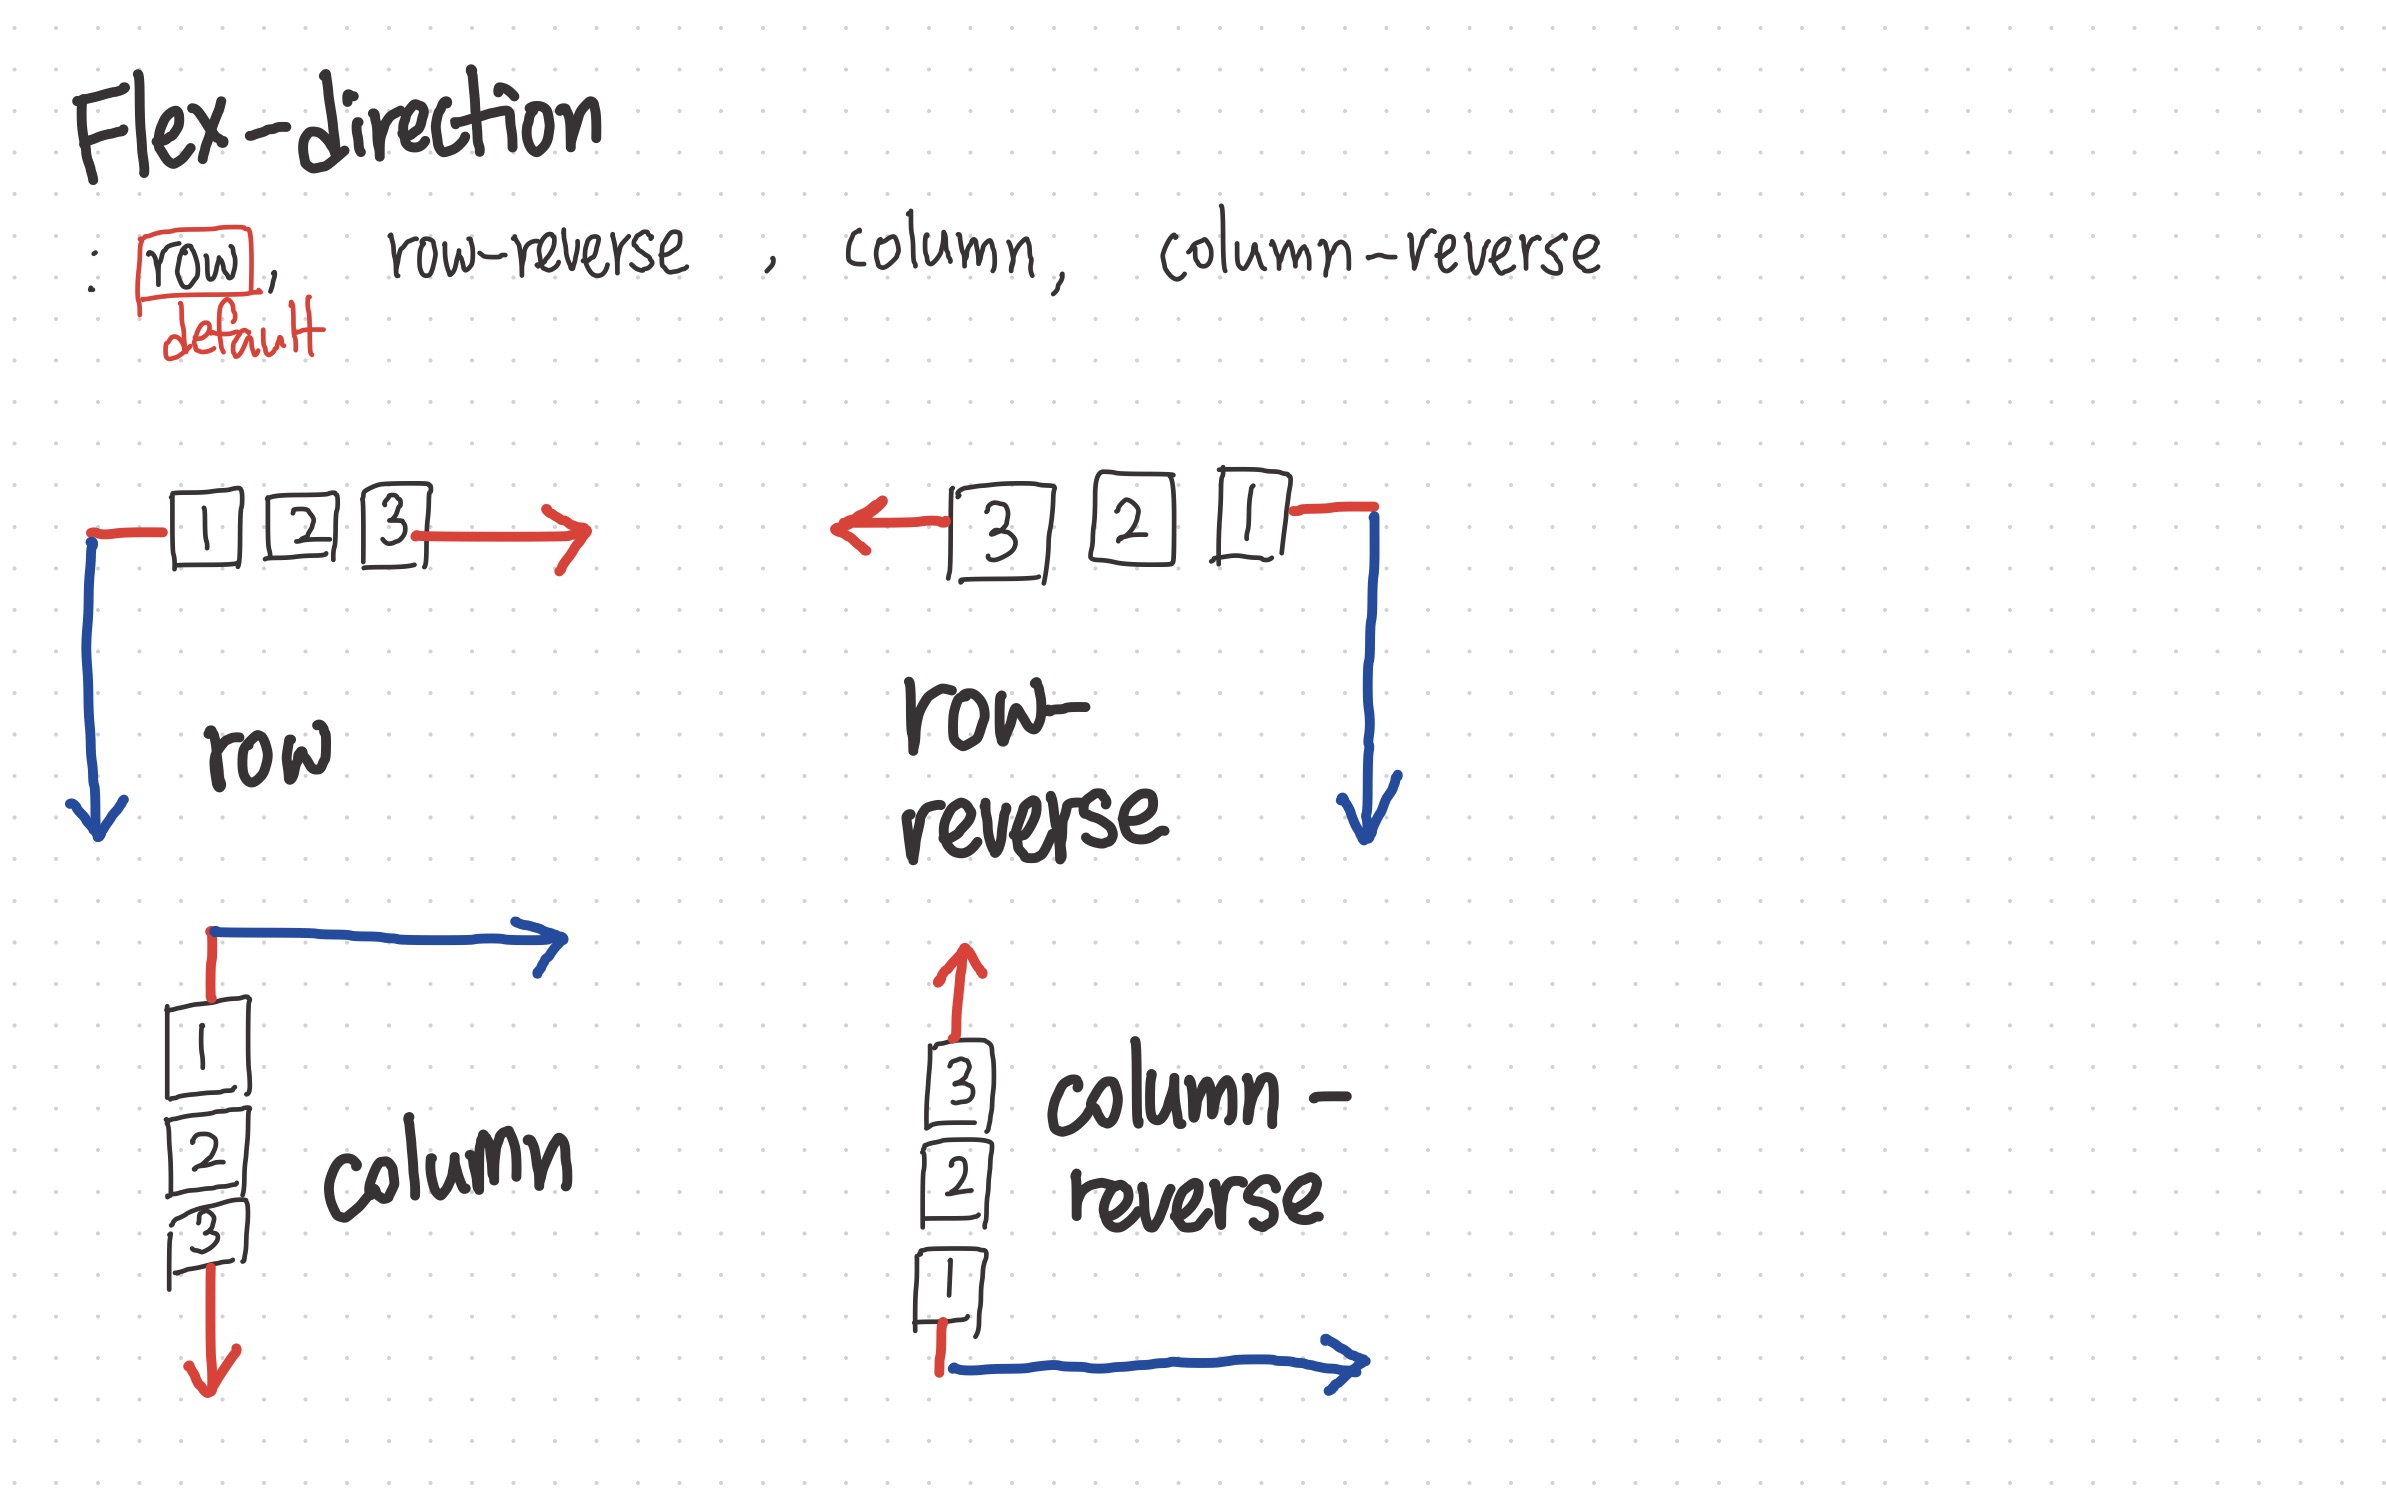 Flex-direction
: row, row-reverse , column, column-reverse
default
1 2 3
3 2 1
row
row-
reverse
1
2
3
column
3
2
1
column-
reverse